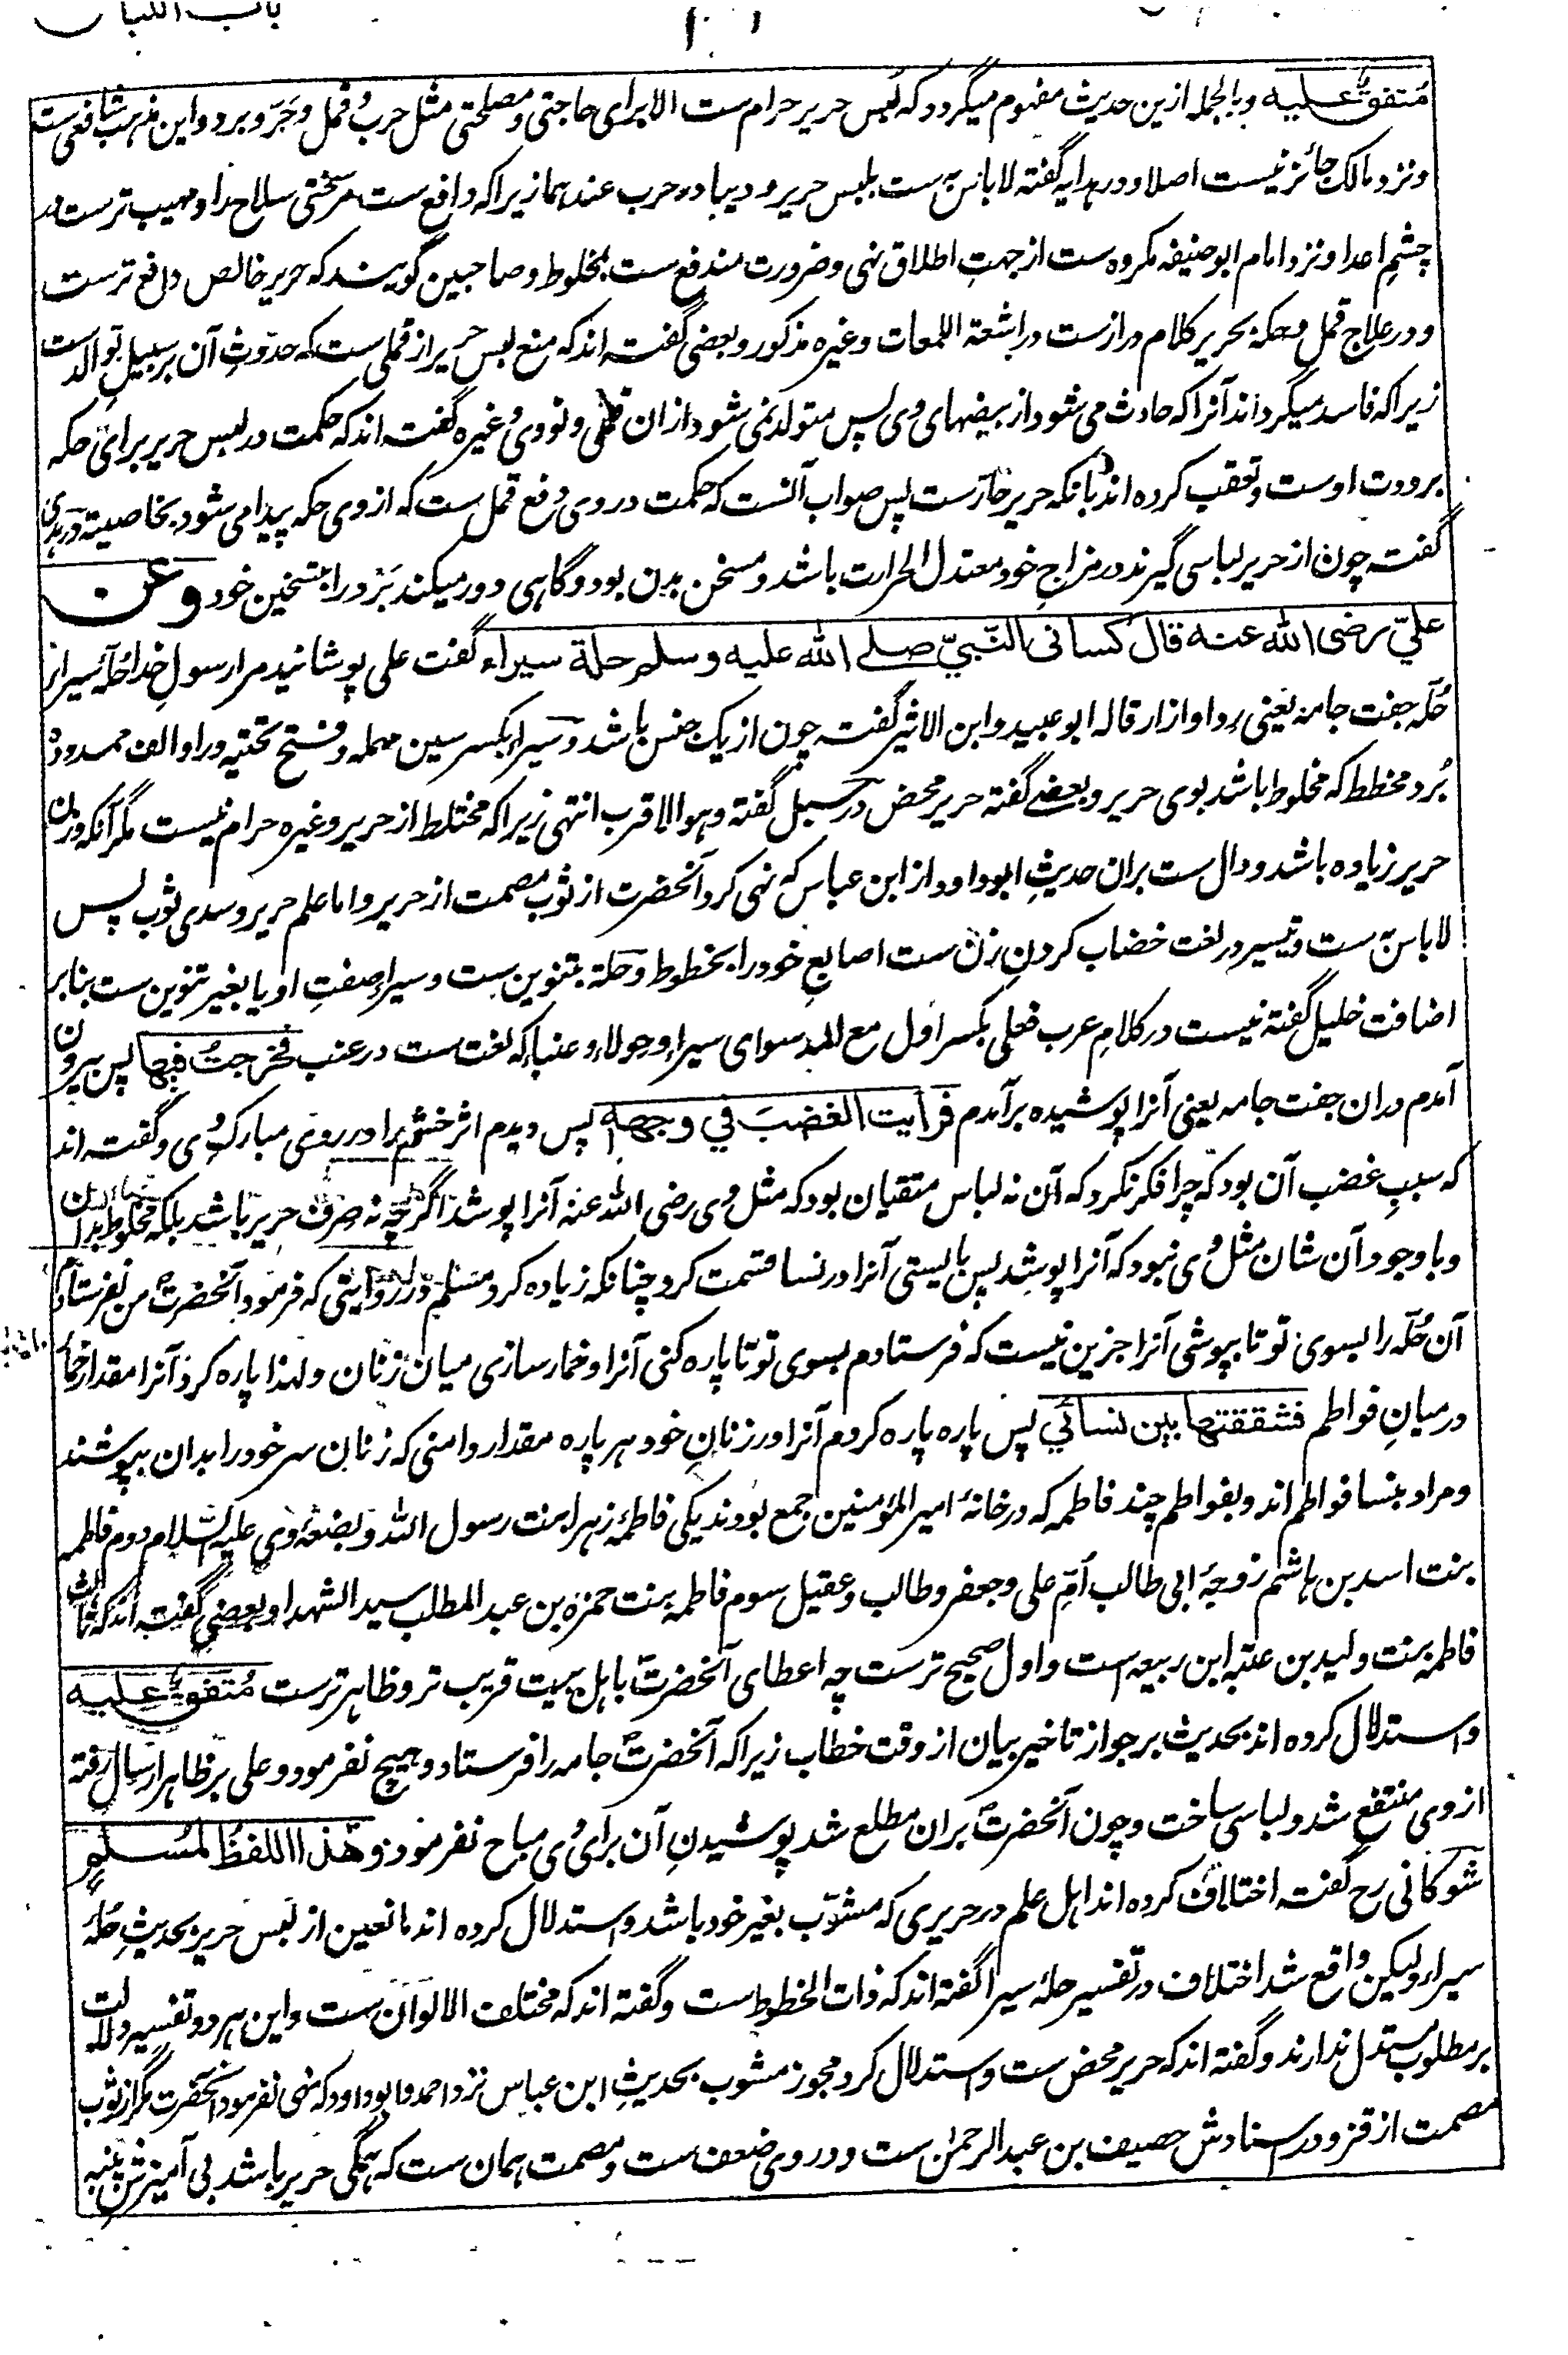 باب اللباس
متفق علیه وبالجمله ازین حدیث مفهوم میگردد که لبس حریر حرام ست الا برای حاجتی و مصلحتی مثل حرب و قمل و جرب و برد و این مذهب شافعی ست
و نزد مالک جائز نیست اصلا و در هدایه گفته لا باس به ست بلبس حریر و دیبا در حرب عندهما زیرا که دافع ست مر سختی سلاح را و مهیب تر ست در
چشم اعدا و نزد امام ابوحنیفه مکروه ست از جهت اطلاق نهی و ضرورت مندفع ست بمخلوط و صاحبین گویند که حریر خالص دافع ترست
و در علاج قمل و حکه بحریر کلام دراز ست در اشعة اللمعات و غیره مذکور و بعضی گفته اند که منع لبس حریر از قملی ست که حدوث آن بر سبیل توالد ست
زیرا که فاسد میگرداند آنرا که حادث می شود از بیضهای وی پس متولد نمی شود ازان قملی و نووی و غیره گفته اند که حکمت در لبس حریر برای حکه
برودت اوست و تعقب کرده اند بآنکه حریر حارست پس صواب آنست که حکمت در وی دفع قمل ست که از وی حکه پیدا می شود بخاصیته در هدی
گفته چون از حریر لباسی گیرند در مزاج خود معتدل الحرارت باشد و مسخن بدن بود و گاهی دور میکند برد را بتسخین خود وعن
علیّ رضی الله عنه قال کسانی النبیّ صلے الله علیه وسلم حلة سیراء گفت علی پوشانید مرا رسول خدا حلهٔ سیرا از
حلّه جفت جامه یعنی ردا و ازار قاله ابوعبید و ابن الاثیر گفته چون از یک جنس باشد و سیراء بکسر سین مهمله و فتح تحتیه و را و الف ممدوده
بُرد مخطط که مخلوط باشد بوی حریر و بعضے گفته حریر محض در سبل گفته وهو الاقرب انتهی زیرا که مختلط از حریر و غیره حرام نیست مگر آنکه وزن
حریر زیاده باشد و دال ست بران حدیث ابوداود از ابن عباس که نهی کرد آنحضرت از ثوب مصمت از حریر و اما علم حریر و سدی ثوب پس
لا باس به ست و تیسیر در لغت خضاب کردن زن ست اصابع خود را بخطوط و حلة بتنوین ست و سیراء صفت او یا بغیر تنوین ست بنابر
اضافت خلیل گفته نیست در کلام عرب فعلی بکسر اول مع المد سوای سیراء و حولاء و عنباء که لغت ست در عنب فخرجتُ فیها پس بیرون
آمدم دران جفت جامه یعنی آنرا پوشیده برآمدم فرأیت الغضبَ في وجهه پس دیدم اثر خشم را در روی مبارک وی و گفته اند
که سبب غضب آن بود که چرا فکر نکرد که آن نه لباس متقیان بود که مثل وی رضی الله عنه آنرا پوشد اگرچه نه صرف حریر باشد بلکه مخلوط بدان
و با وجود آن شان مثل وی نبود که آنرا پوشد پس بایستی آنرا در نسا قسمت کرد چنانکه زیاده کرد مسلم در روایتی که فرمود آنحضرتؐ من نفرستادم
آن حلّه را بسوی تو تا بپوشی آنرا جزین نیست که فرستادم بسوی تو تا پاره کنی آنرا و خمار سازی میان زنان و لهذا پاره کرد آنرا مقدار خمار
در میان فواطم فشققتها بین نسائي پس پاره پاره کردم آنرا در زنان خود هر پاره مقدار دامنی که زنان سر خود را بدان بپوشند
و مراد بنسا فواطم اند و بفواطم چند فاطمه که در خانهٔ امیر المؤمنین جمع بودند یکی فاطمهٔ زهرا بنت رسول الله و بضعهٔ وی علیه السلام دوم فاطمه
بنت اسد بن هاشم زوجهٔ ابی طالب اُمّ علی و جعفر و طالب و عقیل سوم فاطمه بنت حمزه بن عبد المطلب سید الشهدا و بعضی گفته اند که ثالث
فاطمه بنت ولید بن عتبه ابن ربیعه است و اول صحیح ترست چه اعطای آنحضرتؐ باهل بیت قریب تر و ظاهر ترست متفق علیه
و استدلال کرده اند بحدیث بر جواز تاخیر بیان از وقت خطاب زیرا که آنحضرتؐ جامه را فرستاد و هیچ نفرمود و علی بر ظاهر ارسال رفته
از وی منتفع شد و لباسی ساخت و چون آنحضرتؐ بران مطلع شد پوشیدن آن برای وی مباح نفرمود و هٰذا اللفظُ لمسلمٍ
شوکانی رح گفته اختلاف کرده اند اهل علم در حریری که مشوّب بغیر خود باشد و استدلال کرده اند مانعین از لبس حریر بحدیث حلهٔ
سیراء و لیکن واقع شد اختلاف در تفسیر حلهٔ سیرا گفته اند که ذات الخطوط ست و گفته اند که مختلف الالوان ست و این هر دو تفسیر دلالت
بر مطلوب مستدل ندارند و گفته اند که حریر محض ست و استدلال کرد مجوز مشوب بحدیث ابن عباس نزد احمد و ابوداود که نهی نفرمود آنحضرت مگر از ثوب
مصمت از قز و در اسنادش حصیف بن عبد الرحمٰن ست و در وی ضعف ست و مصمت همان ست که همگی حریر باشد بی آمیزش پنبه